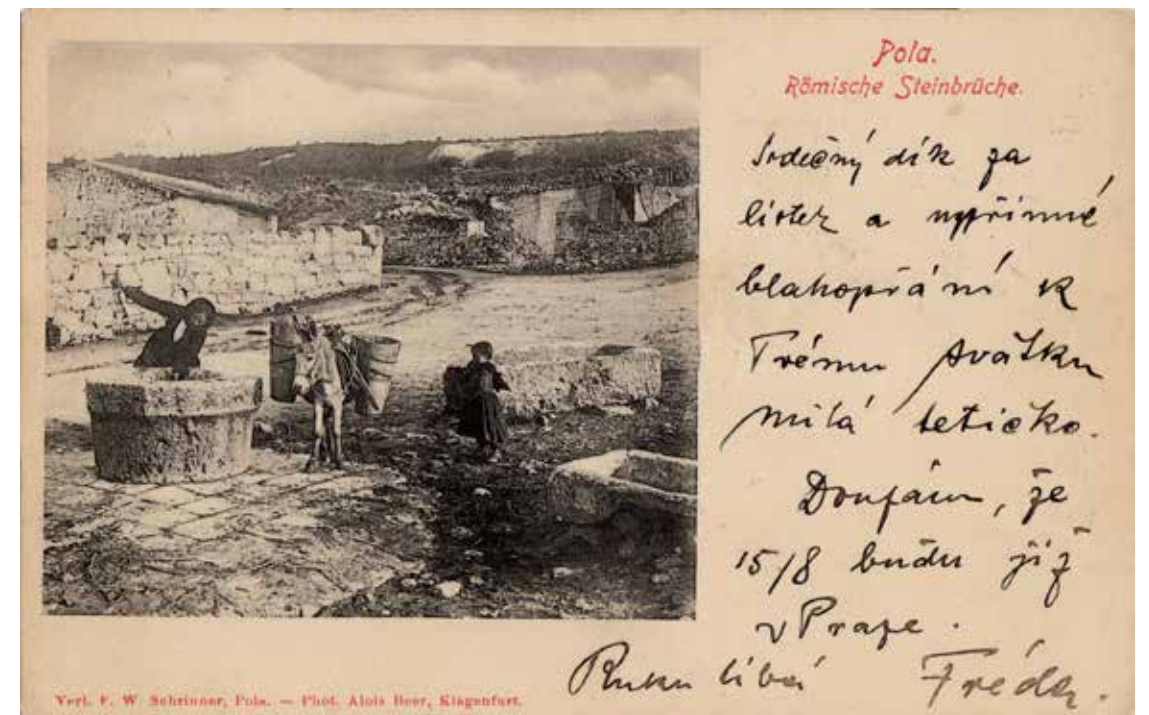 Pola.
Römische Steinbrüche.
Srdečný dík za
lístek a upřímné
blahopřání k
Tvému svátku
milá tetičko.
Doufám, že
15/8 budu již
v Praze.
Ruku líbá
Verl. F. W. Schrinner, Pola. — Phot. Alois Beer, Klagenfurt.